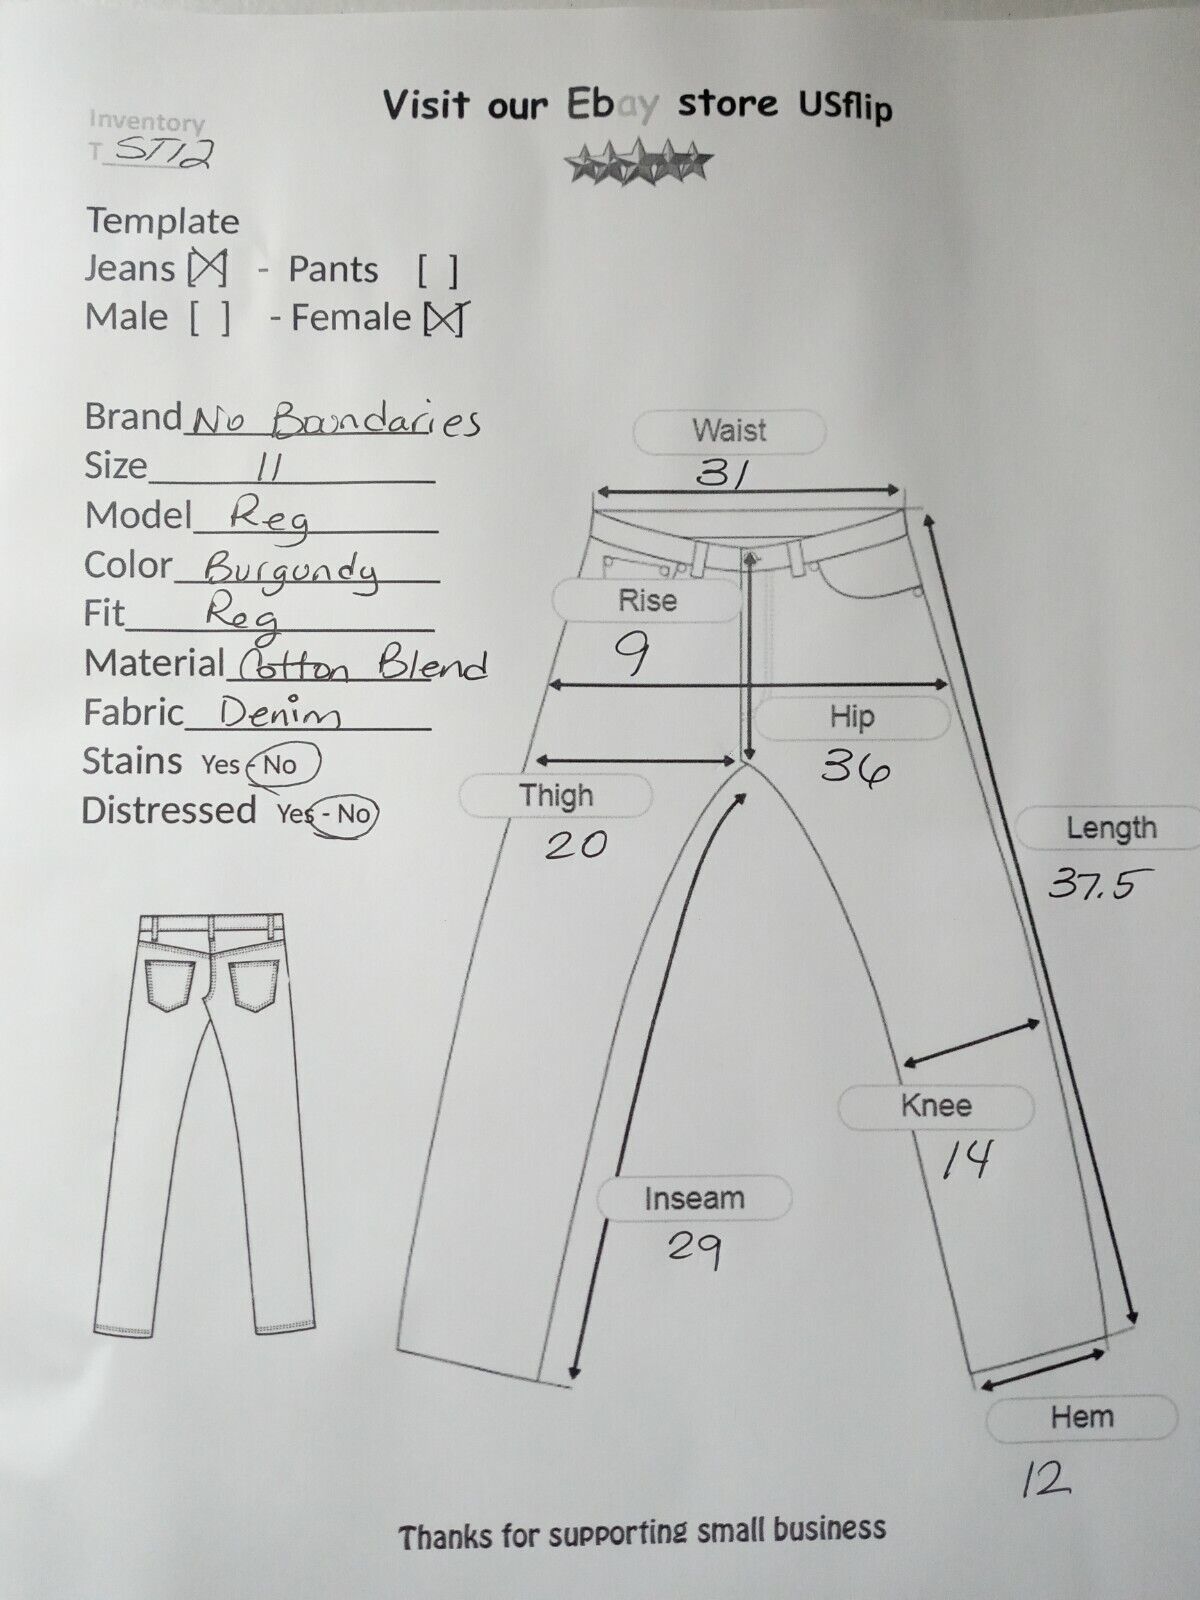 Visit our Ebay store USflip
Inventory
T ST12
Template
Jeans [X] - Pants [ ]
Male [ ] - Female [X]
Brand No Boundaries
Size 11
Model Reg
Color Burgundy
Fit Reg
Material Cotton Blend
Fabric Denim
Stains Yes - No
Distressed Yes - No
Waist
31
Rise
9
Hip
36
Thigh
20
Length
37.5
Knee
14
Inseam
29
Hem
12
Thanks for supporting small business